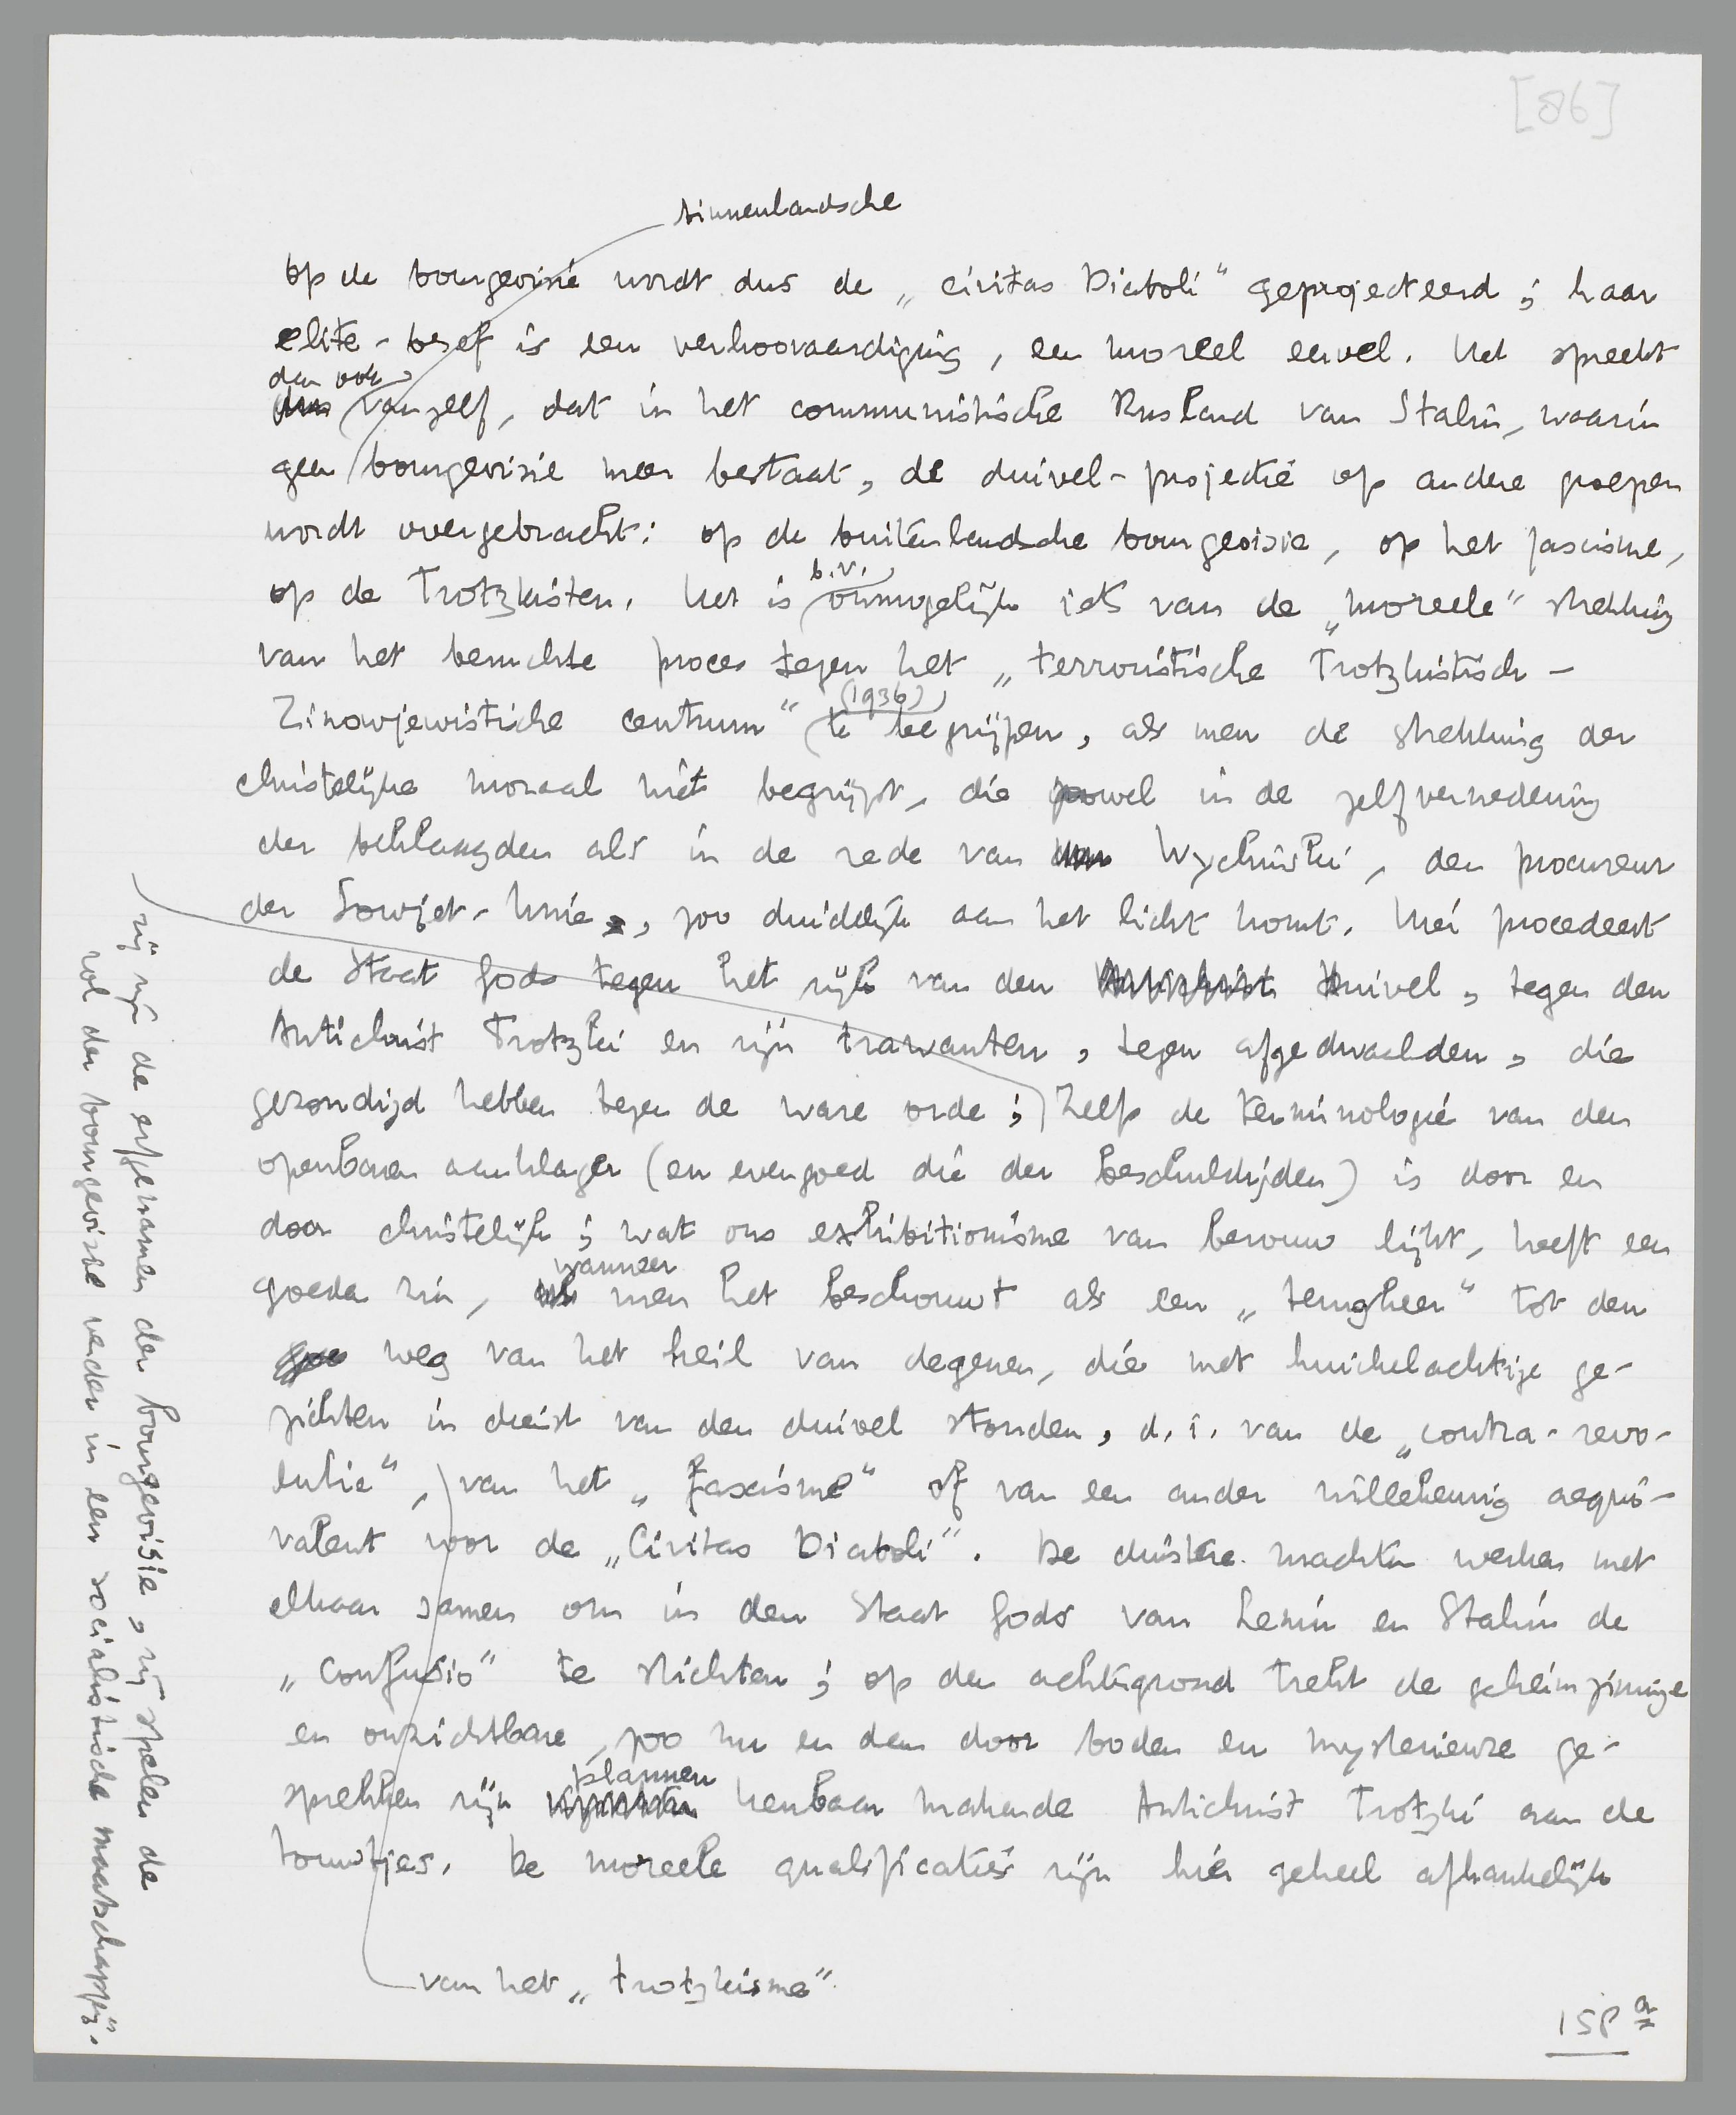 [86]
binnenlandsche
Op de bourgeoisie wordt dus de „civitas Diaboli" geprojecteerd; haar
elite-besef is een verhoovaardiging, een moreel euvel. Het spreekt
dan ook
dus vanzelf, dat in het communistische Rusland van Stalin, waarin
geen bourgeoisie meer bestaat, de duivel-projectie op andere groepen
wordt overgebracht: op de buitenlandsche bourgeoisie, op het fascisme,
b.v.
op de Trotzkisten. Het is onmogelijk iets van de „moreele" strekking
van het beruchte proces tegen het „terroristische Trotzkistisch-
(1936)
Zinowjewistische centrum" te begrijpen, als men de strekking der
christelijke moraal niet begrijpt, die zoowel in de zelfvernedering
der beklaagden als in de rede van Wyschinski, den procureur
der Sowjet-Unie, zoo duidelijk aan het licht komt. Hier procedeert
de Staat Gods tegen het rijk van den Antichrist Duivel, tegen den
Antichrist Trotzki en zijn trawanten, tegen afgedwaalden, die
gezondigd hebben tegen de ware orde; Zelfs de terminologie van den
openbaren aanklager (en evengoed die der beschuldigden) is door en
door christelijk; wat ons exhibitionisme van berouw lijkt, heeft een
wanneer
goede zin, als men het beschouwt als een „terugkeer" tot den
weg van het heil van degenen, die met huichelachtige ge-
zichten in dienst van den duivel stonden, d.i. van de „contra-revo-
lutie", van het „fascisme" of van een ander willekeurig aequi-
valent voor de „Civitas Diaboli". De duistere machten werken met
elkaar samen om in den Staat Gods van Lenin en Stalin de
„confusio" te stichten; op den achtergrond trekt de geheimzinnige
en onzichtbare, zoo nu en dan door boden en mysterieuze ge-
plannen
sprekken zijn kenbaar makende Antichrist Trotzki aan de
touwtjes. De moreele qualificaties zijn hier geheel afhankelijk
van het „trotzkisme"
158 a
zij zijn de erfgenamen der bourgeoisie, zij spelen de
rol der bourgeoisie verder in een socialistische maatschappij".